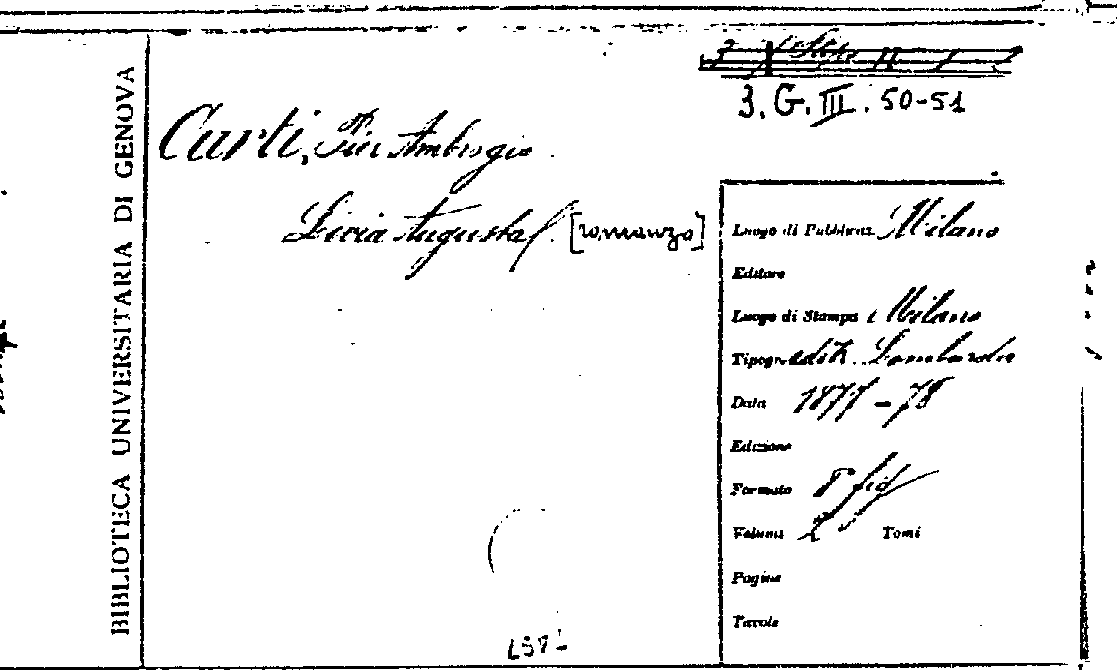 BIBLIOTECA UNIVERSITARIA DI GENOVA
3. G. III. 50-51
Curti, Pier Ambrogio.
Livia Augusta. [romanzo]
Luogo di Pubblicaz. Milano
Editore
Luogo di Stampa Milano
Tipogr. edit. Lombarda
Data 1877-78
Edizione
Formato 8° fig
Volumi 2 Tomi
Pagine
Tavole